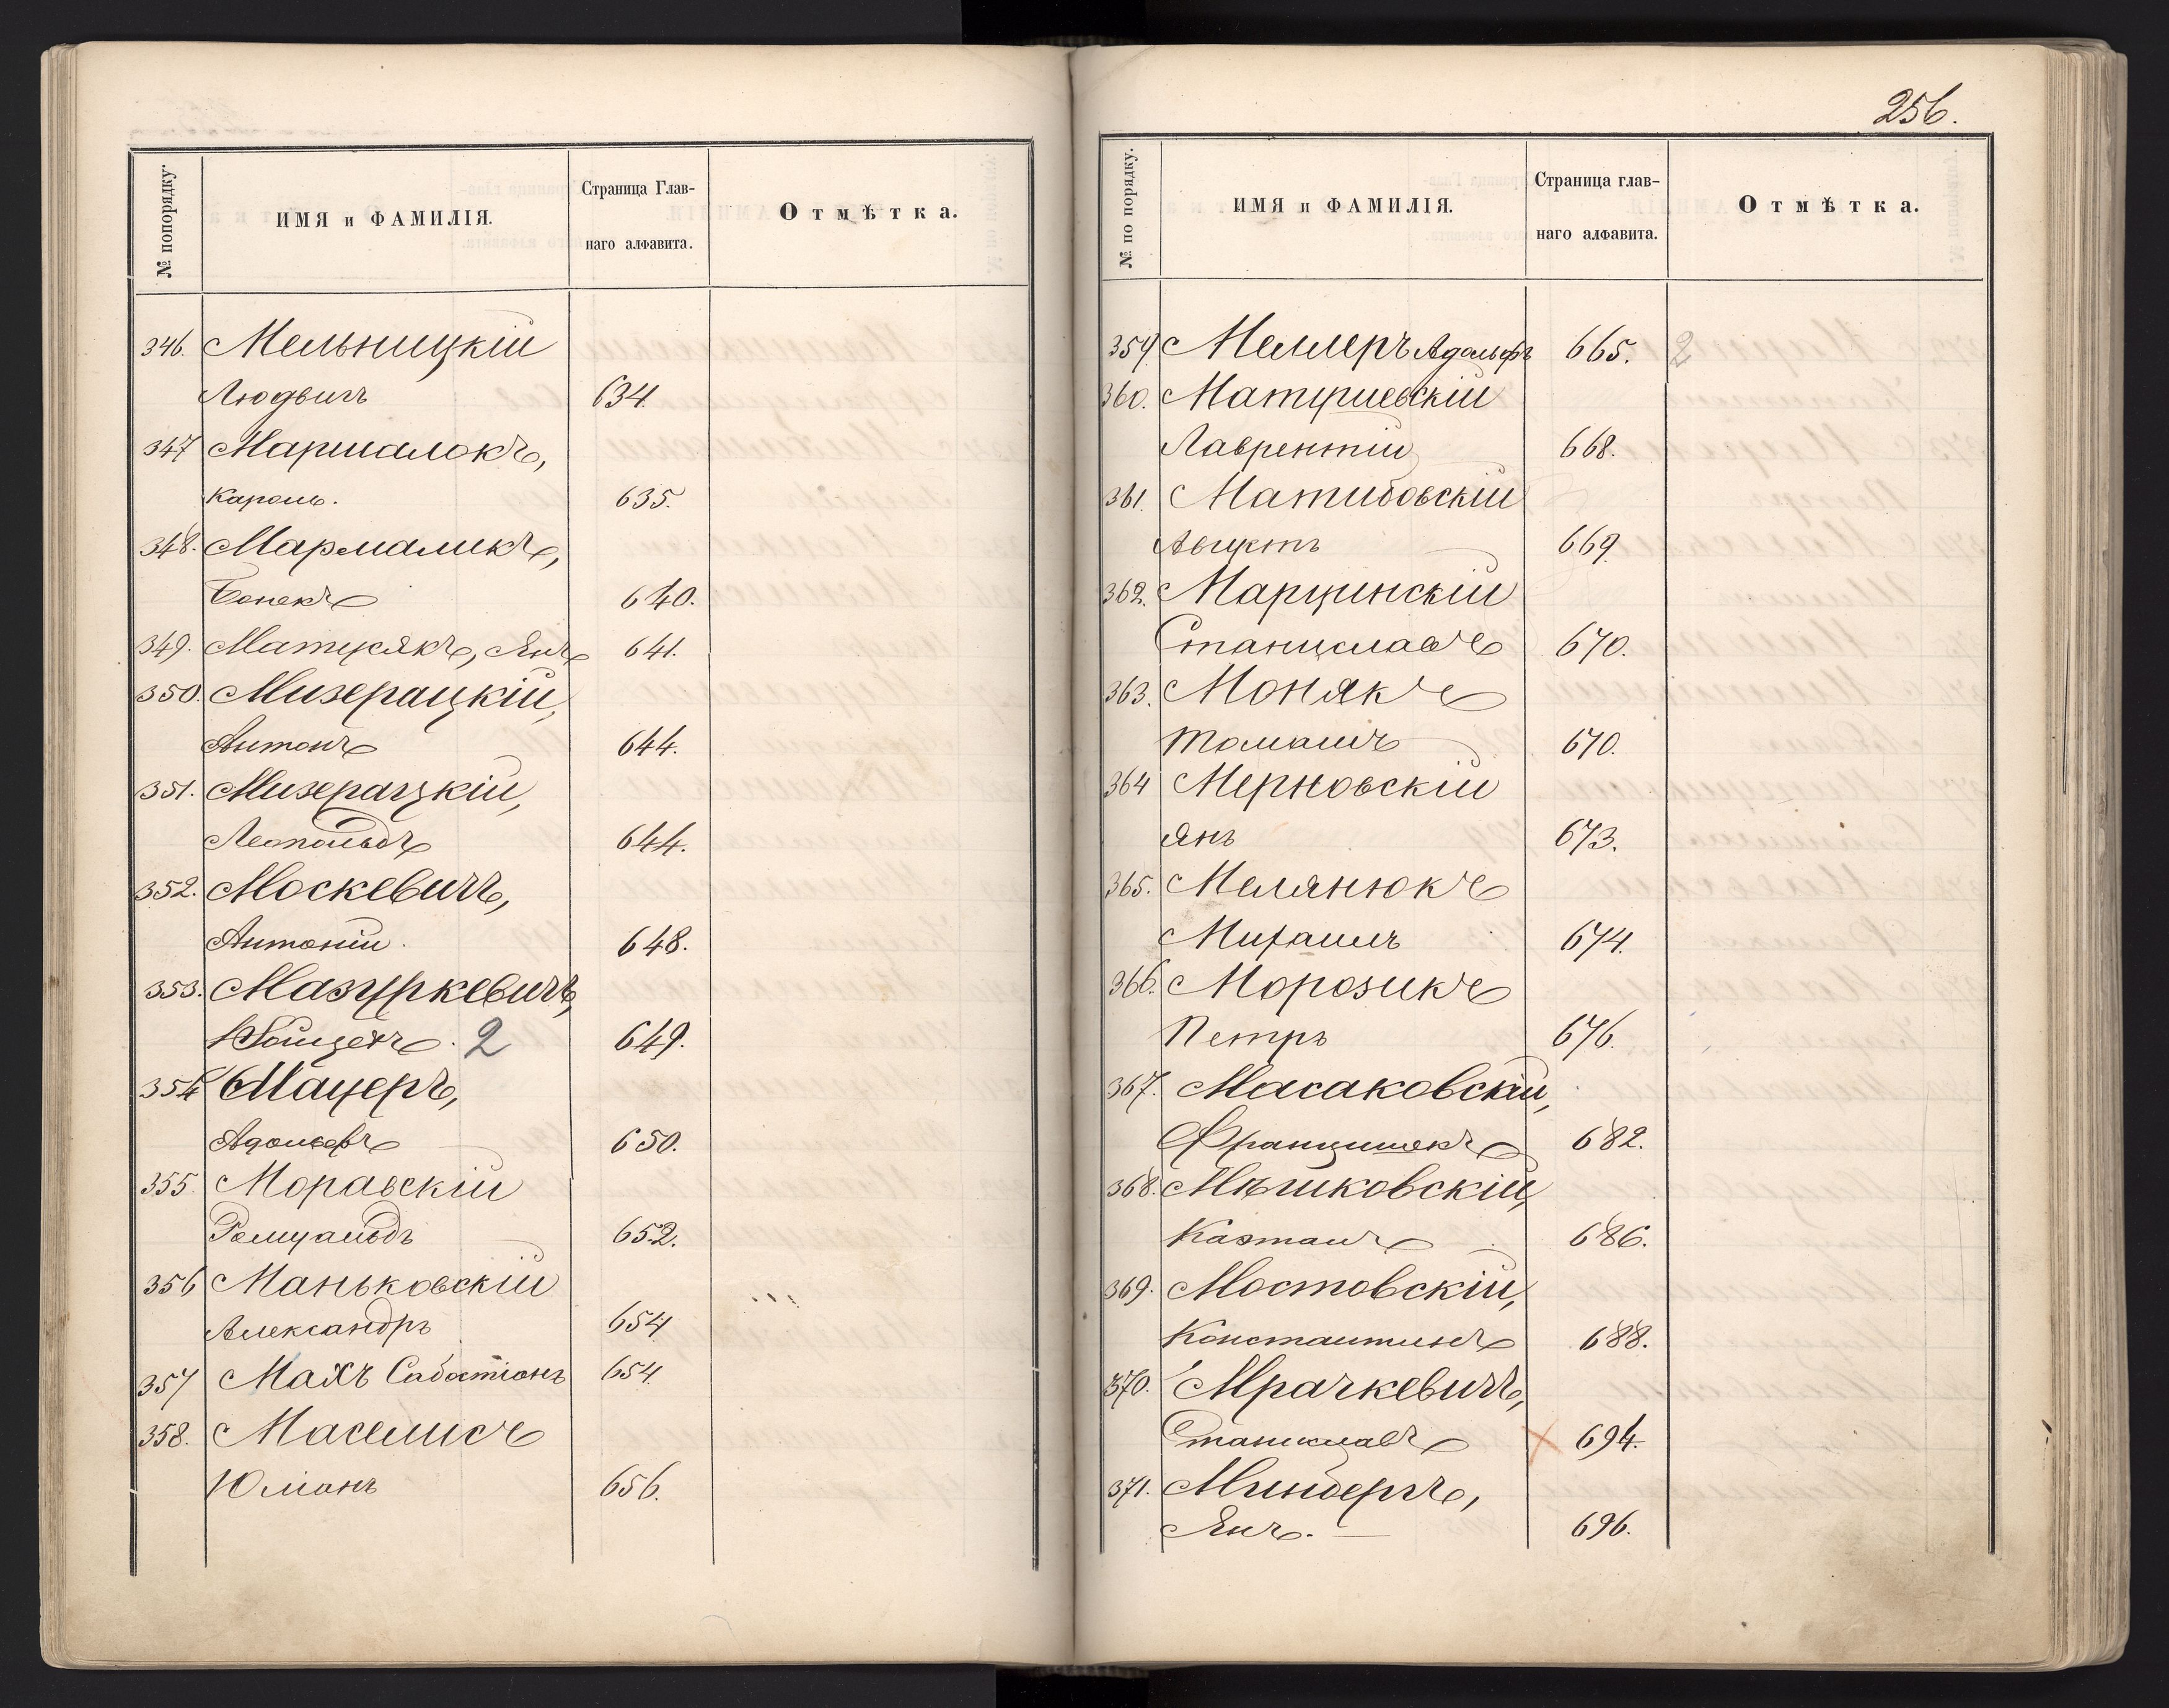 № попорядку.
ИМЯ и ФАМИЛІЯ.
Страница Глав-
наго алфавита.
Отмѣтка.
346. Мельницкій
Людвигъ 634.
347 Маршалокъ,
Кароль. 635.
348. Мармаликъ,
Бенекъ 640.
349. Матусякъ, Янъ 641.
350. Мизерацкій,
Антонъ 644.
351. Мизерацкій,
Леопольдъ 644.
352. Москевичъ,
Антоній. 648.
353. Мазуркевичъ,
Войцехъ. 2 649.
354 Мацеръ,
Адольфъ 650.
355 Моравскій
Ромуальдъ 652.
356 Маньковскій
Александръ 654
357 Махъ Сабатіонъ 654.
358. Маселисъ
Юліанъ 656.
256.
№ по порядку.
ИМЯ и ФАМИЛІЯ.
Страница глав-
наго алфавита.
Отмѣтка.
359 Меллеръ Адольфъ 665. 2
360. Матушевскій
Лаврентій 668.
361. Матибовскій
Августъ 669.
362. Марцинскій
Станиславъ 670.
363. Монякъ
Томашъ 670.
364 Мерновскій
Янъ 673.
365. Мелянюкъ
Михаилъ 674.
366. Морозикъ
Петръ 676.
367. Масаковскій,
Францишекъ 682.
368. Мѣшковскій,
Каэтанъ 686.
369. Мостовскій,
Константинъ 688.
370. Мрачкевичъ,
Станиславъ 694.
371. Миндеръ,
Янъ. — 696.